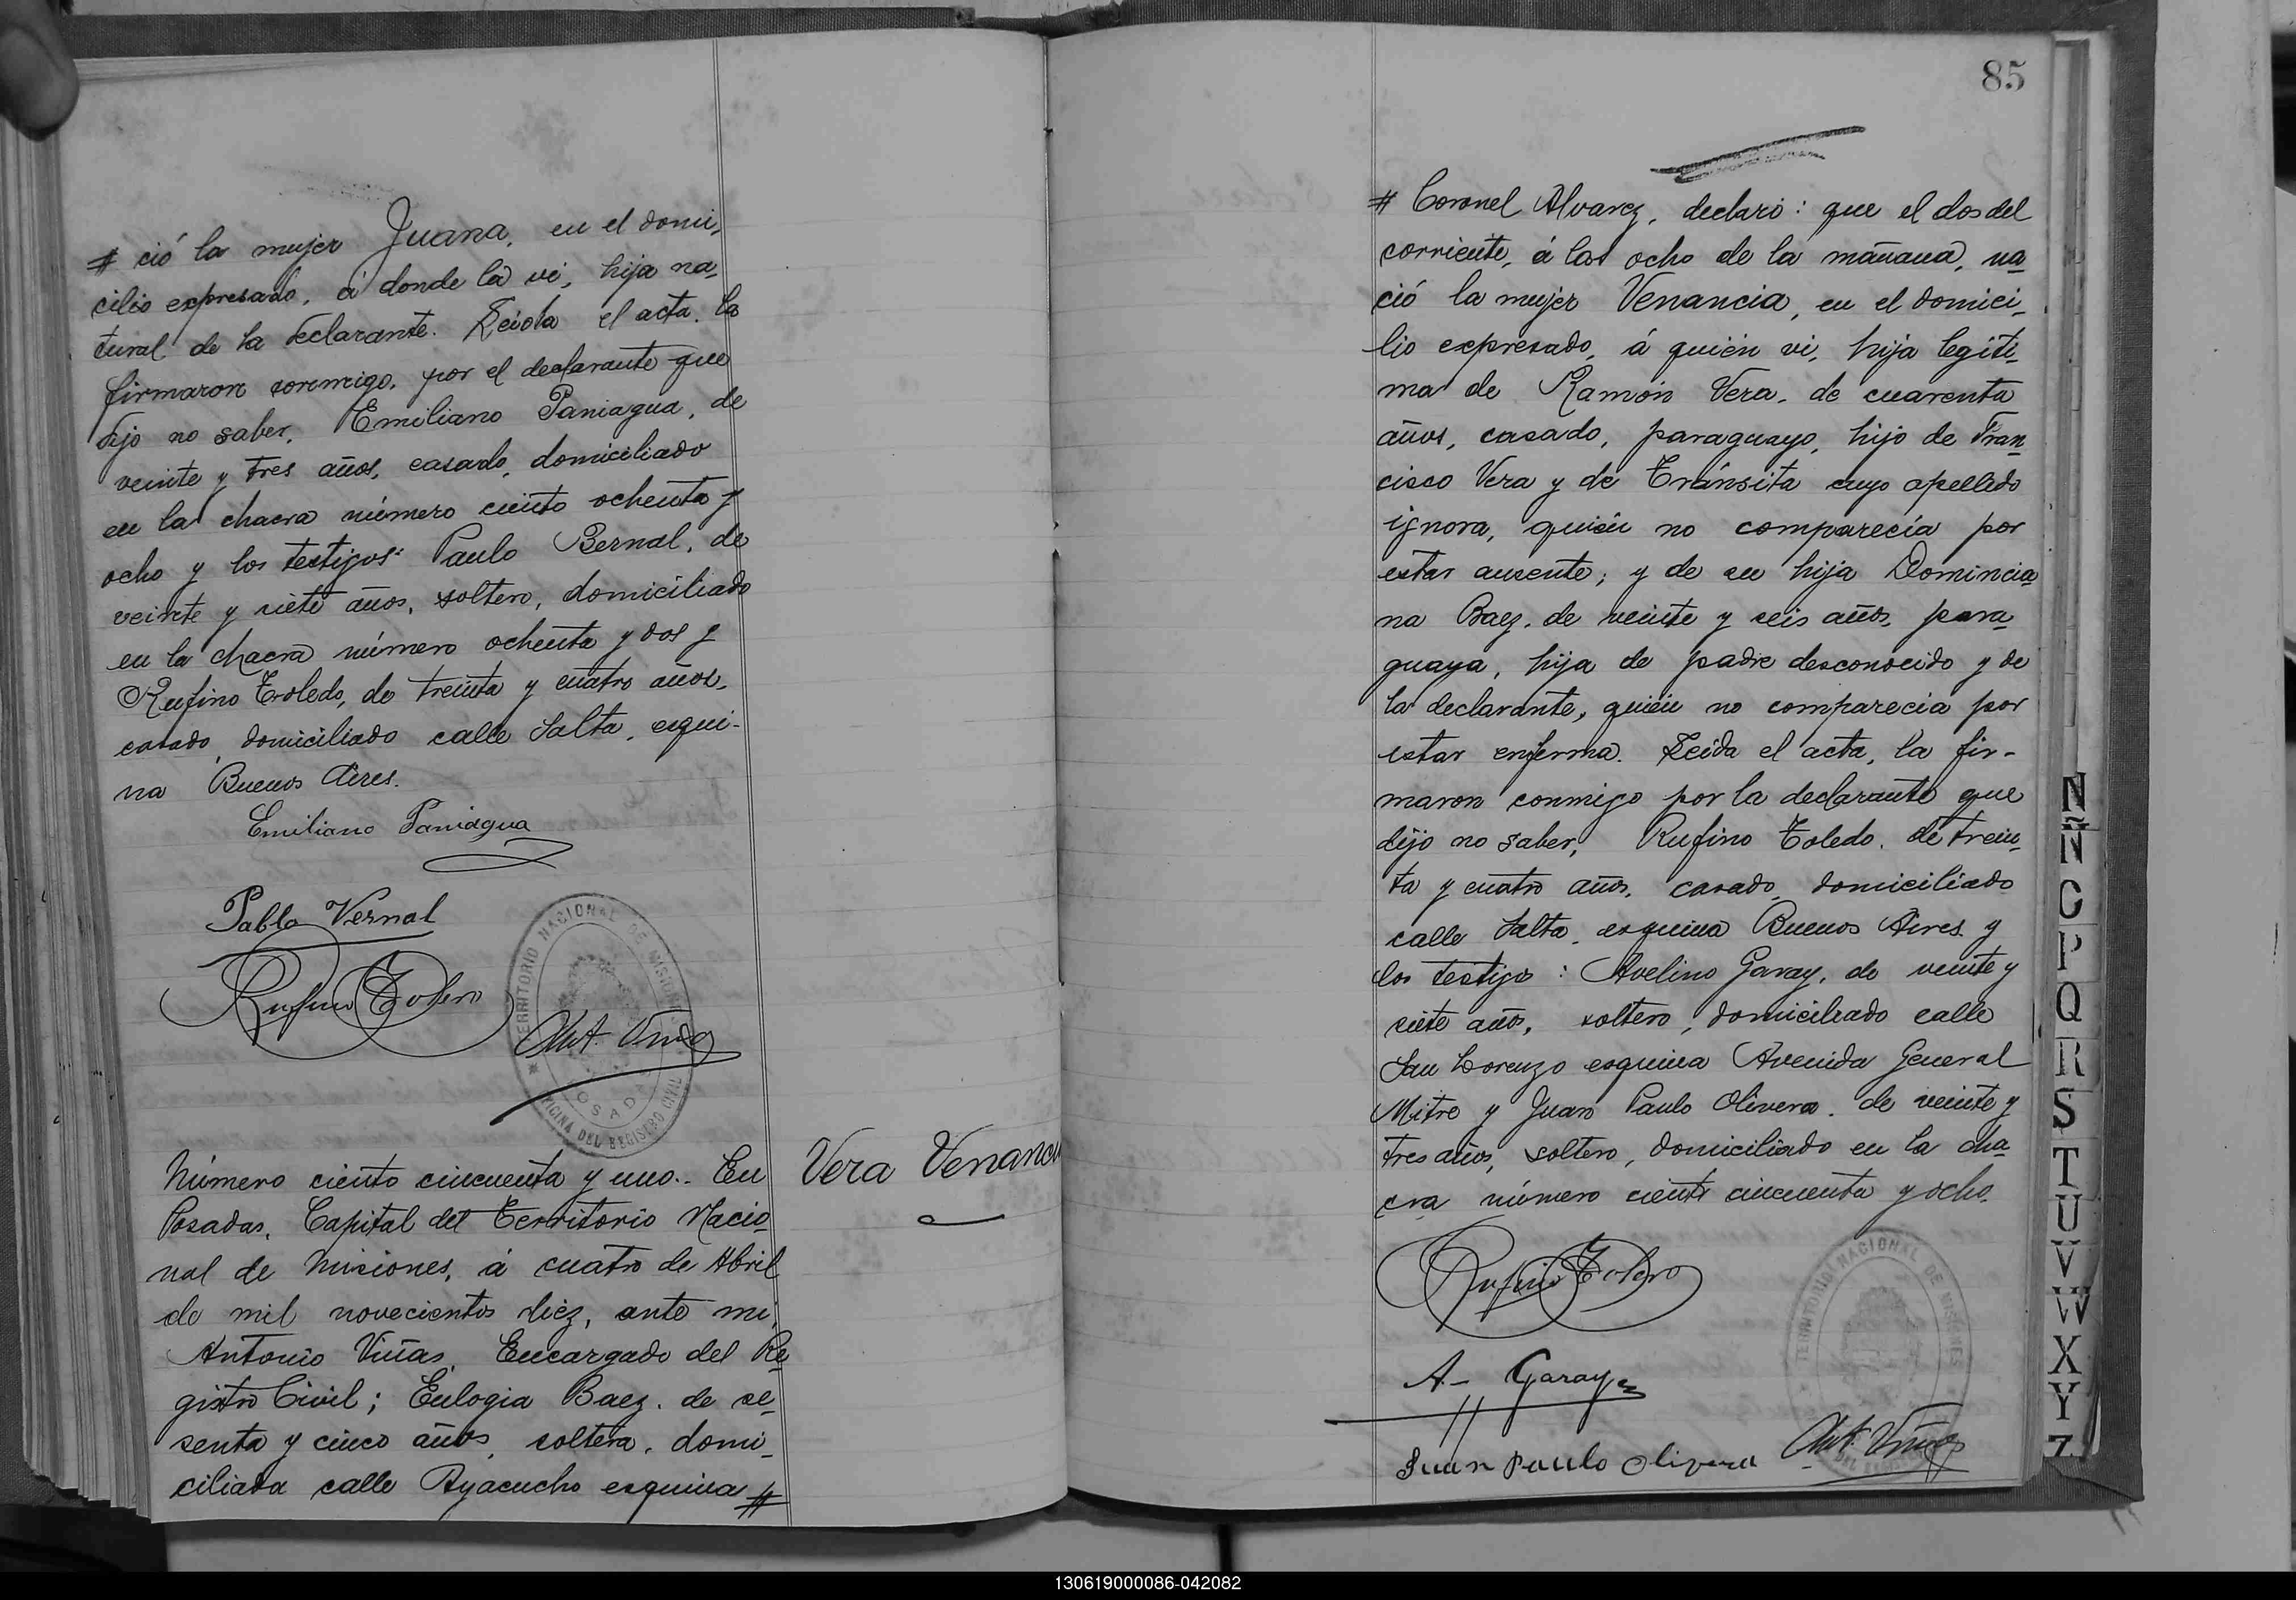 # ció la mujer Juana, en el domi-
cilio expresado, á donde la vi, hija na-
tural de la declarante. Leida el acta, la
firmaron conmigo, por el declarante que
dijo no saber, Emiliano Paniagua, de
veinte y tres años, casado, domiciliado
en la chacra número ciento ochenta y
ocho y los testigos: Paulo Bernal, de
veinte y siete años, soltero, domiciliado
en la chacra número ochenta y dos y
Rufino Toledo, de treinta y cuatro años,
casado, domiciliado calle Salta, esqui-
na Buenos Aires.
Emiliano Paniagua
Pablo Vernal
Rufino Toledo
TERRITORIO NACIONAL DE MISIONES
Ant. Viñas
POSADAS
OFICINA DEL REGISTRO CIVIL
Número ciento cincuenta y uno.- En
Posadas, Capital del Territorio Nacio-
nal de Misiones, á cuatro de Abril
de mil novecientos diez, ante mi,
Antonio Viñas, Encargado del Re-
gistro Civil; Eulogia Baez, de se-
senta y cinco años, soltera, domi-
ciliada calle Ayacucho esquina #
Vera Venancia
85
# Coronel Alvarez, declaró: que el dos del
corriente, á las ocho de la mañana, na-
ció la mujer Venancia, en el domici-
lio expresado, á quién vi, hija legiti-
ma de Ramón Vera, de cuarenta
años, casado, paraguayo, hijo de Fran-
cisco Vera y de Tránsita cuyo apellido
ignora, quién no comparecía por
estar ausente; y de su hija Domincia-
na Baez, de veinte y seis años, para-
guaya, hija de padre desconocido y de
la declarante, quién no comparecia por
estar enferma. Leida el acta, la fir-
maron conmigo por la declarante que
dijo no saber, Rufino Toledo, de trein-
ta y cuatro años, casado, domiciliado
calle Salta, esquina Buenos Aires y
los testigos: Avelino Garay, de veinte y
siete años, soltero, domiciliado calle
San Lorenzo esquina Avenida General
Mitre y Juan Paulo Olivera, de veinte y
tres años, soltero, domiciliado en la cha-
cra número ciento cincuenta y ocho.
Rufino Toledo
TERRITORIO NACIONAL DE MISIONES
A- Garay
Juan Paulo Olivera
Ant. Viñas
N
Ñ
O
P
Q
R
S
T
U
V
W
X
Y
Z
130619000086-042082